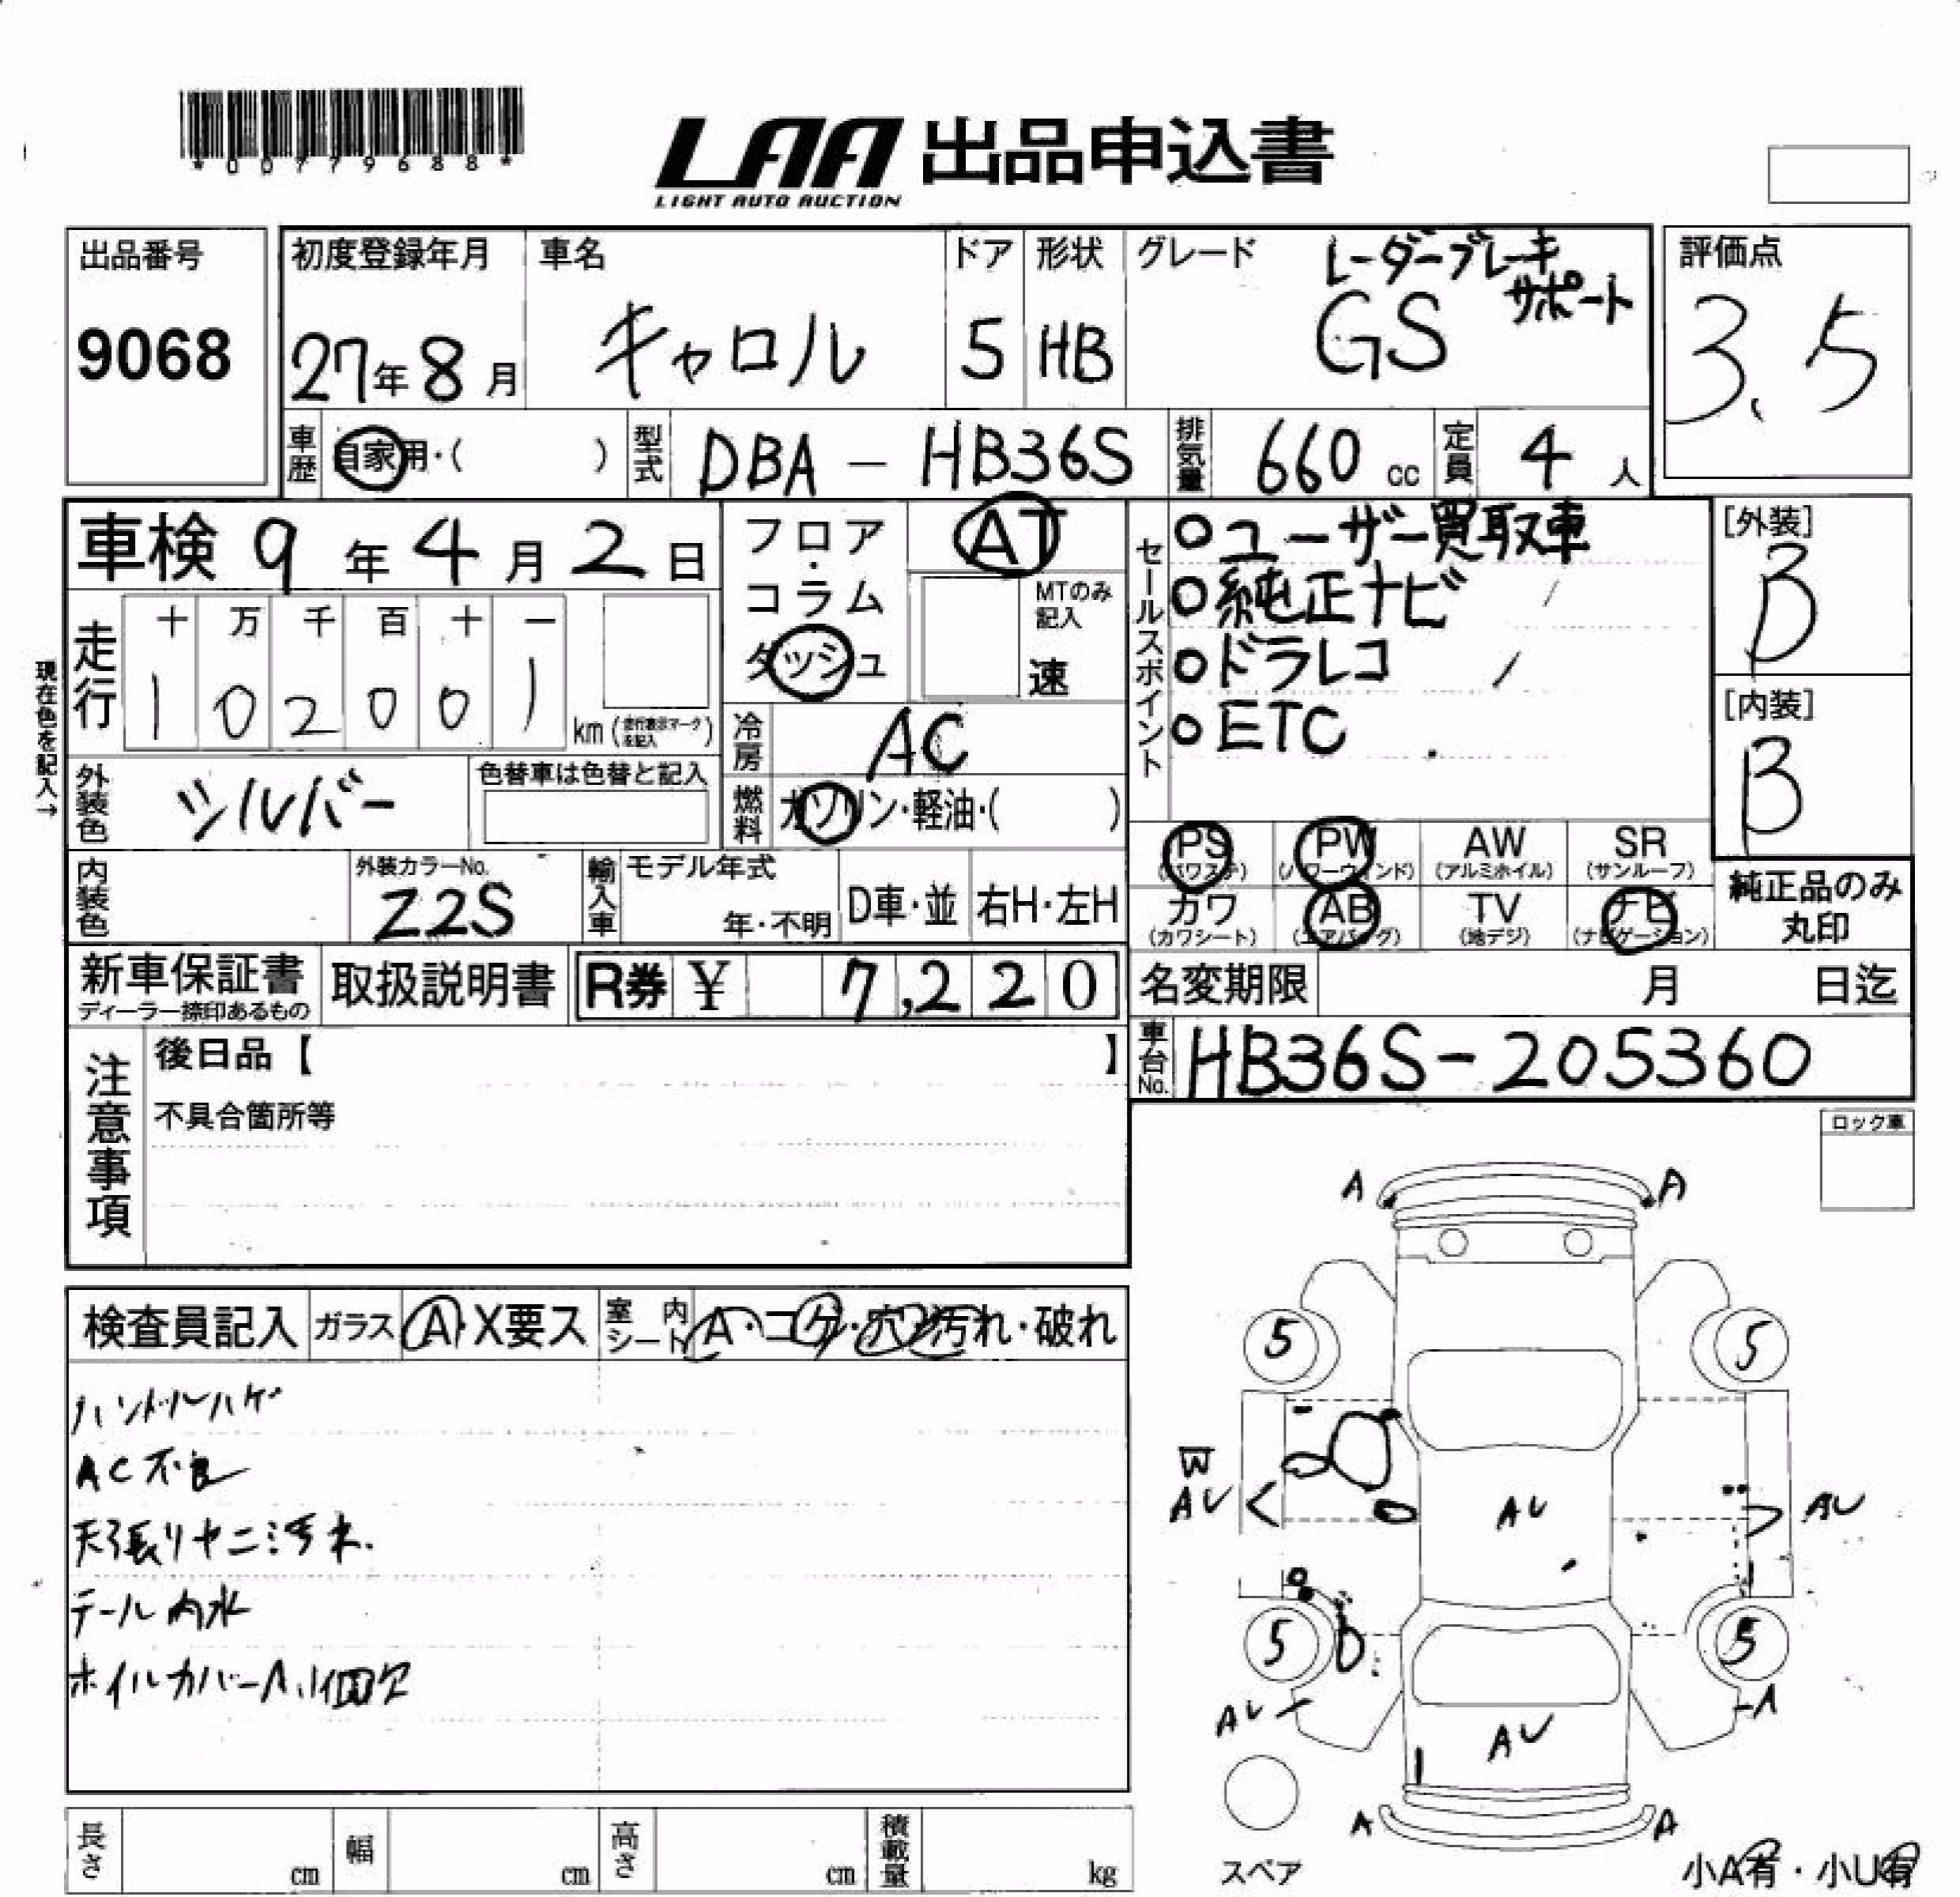 *00779688*
LAA 出品申込書
LIGHT AUTO AUCTION
出品番号
9068
初度登録年月
27年8月
車名
キャロル
ドア
5
形状
HB
グレード
レーダーブレーキ
サポート
GS
評価点
3.5
車歴
自家用・( )
型式
DBA-HB36S
排気量
660 cc
定員
4人
車検 9年4月2日
現在色を記入→
走行
十 万 千 百 十 一
1 0 2 0 0 1
km(走行表示マークを記入)
フロア・
コラム
ダッシュ
AT
MTのみ
記入
速
冷房
AC
燃料
ガソリン・軽油・( )
外装色
シルバー
色替車は色替と記入
内装色
外装カラーNo.
Z2S
輸入車
モデル年式
年・不明
D車・並
右H・左H
セールスポイント
○ユーザー買取車
○純正ナビ
○ドラレコ
○ETC
[外装]
B
[内装]
B
PS
(パワステ)
PW
(パワーウィンド)
AW
(アルミホイル)
SR
(サンルーフ)
カワ
(カワシート)
AB
(エアバッグ)
TV
(地デジ)
ナビ
(ナビゲーション)
純正品のみ
丸印
新車保証書
ディーラー捺印あるもの
取扱説明書
R券 ¥ 7,220
名変期限 月 日迄
車台No.
HB36S-205360
注意事項
後日品【 】
不具合箇所等
ロック車
検査員記入
ガラス
A・X要ス
室内シート
A・コゲ・穴・汚れ・破れ
ハンドルハゲ
AC不良
天張りヤニ汚れ.
テール内水
ホイルカバーA,1個欠
A
A
5
5
W
AU
AU
AU
5
5
AU
A
AU
A
A
スペア
小A有・小U有
長さ
cm
幅
cm
高さ
cm
積載量
kg